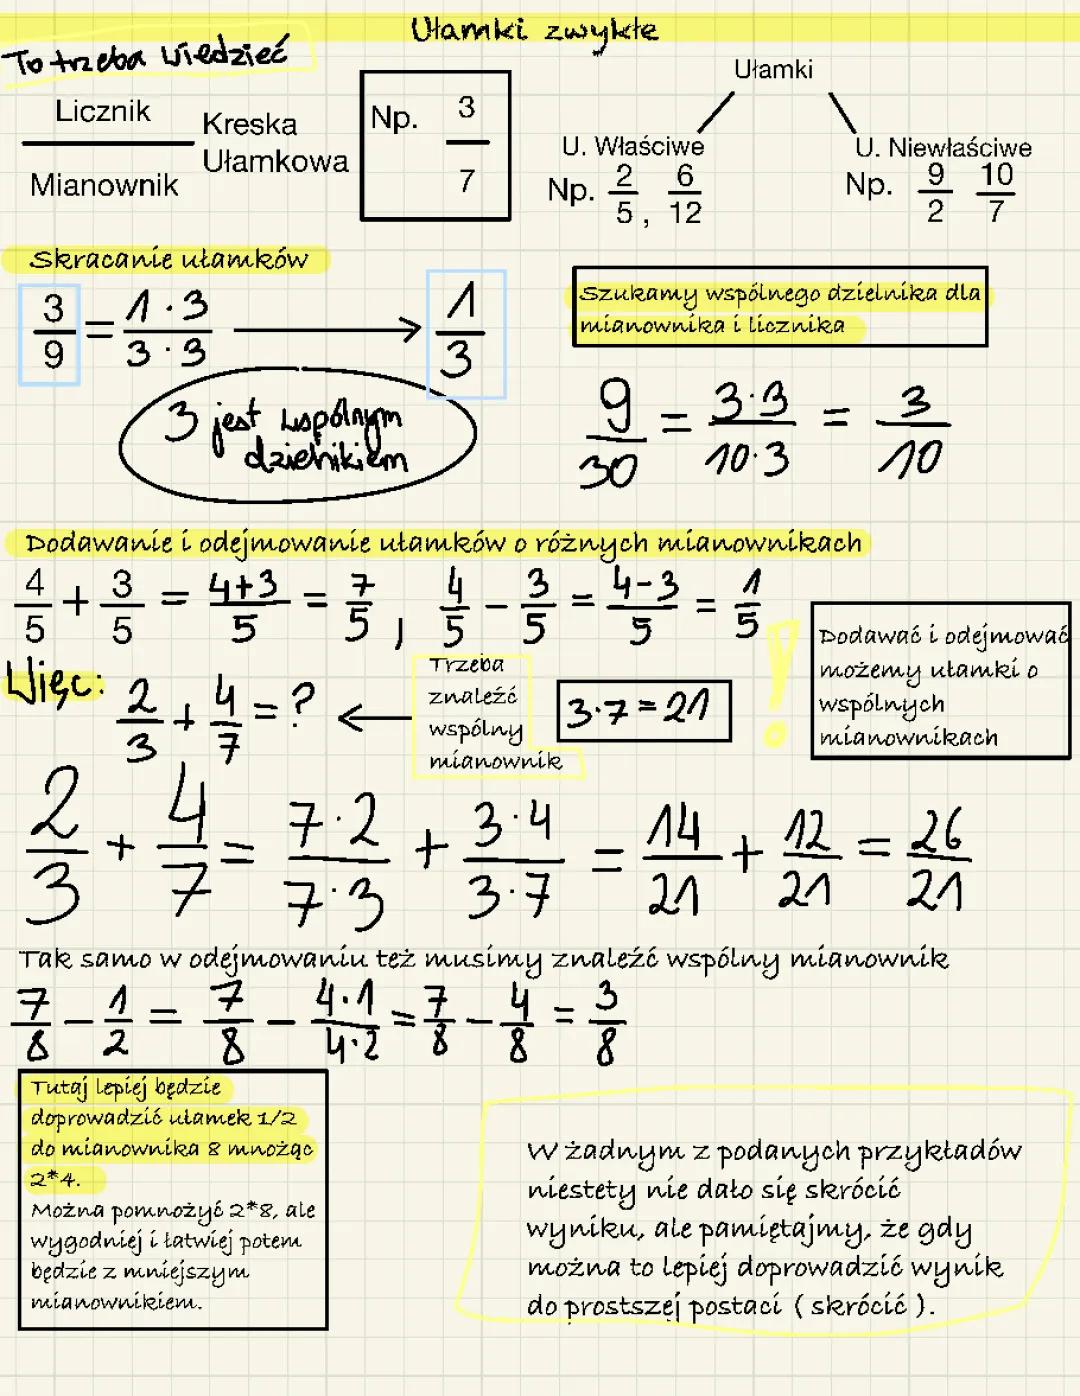 Ułamki zwykłe
To trzeba wiedzieć
Licznik
Kreska
Ułamkowa
Mianownik
Np. 3/7
Ułamki
U. Właściwe
Np. 2/5, 6/12
U. Niewłaściwe
Np. 9/2 10/7
Skracanie ułamków
3/9 = 1·3/3·3 → 1/3
3 jest wspólnym
dzielnikiem
Szukamy wspólnego dzielnika dla
mianownika i licznika
9/30 = 3·3/10·3 = 3/10
Dodawanie i odejmowanie ułamków o różnych mianownikach
4/5 + 3/5 = 4+3/5 = 7/5, 4/5 - 3/5 = 4-3/5 = 1/5
!
Dodawać i odejmować
możemy ułamki o
wspólnych
mianownikach
Więc:
2/3 + 4/7 = ? ←
Trzeba
znaleźć
wspólny
mianownik
3·7=21
2/3 + 4/7 = 7·2/7·3 + 3·4/3·7 = 14/21 + 12/21 = 26/21
Tak samo w odejmowaniu też musimy znaleźć wspólny mianownik
7/8 - 1/2 = 7/8 - 4·1/4·2 = 7/8 - 4/8 = 3/8
Tutaj lepiej będzie
doprowadzić ułamek 1/2
do mianownika 8 mnożąc
2*4.
Można pomnożyć 2*8, ale
wygodniej i łatwiej potem
będzie z mniejszym
mianownikiem.
W żadnym z podanych przykładów
niestety nie dało się skrócić
wyniku, ale pamiętajmy, że gdy
można to lepiej doprowadzić wynik
do prostszej postaci ( skrócić ).